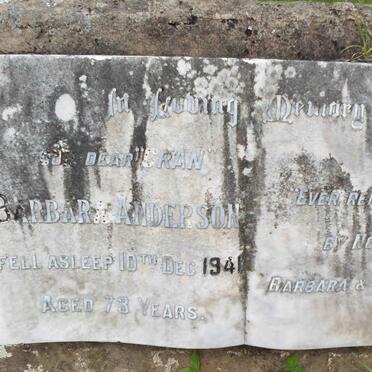 In Loving Memory
DEAR "GRAN"
BARBARA ANDERSON
FELL ASLEEP 10TH DEC 1941
AGED 78 YEARS.
EVER RE
BY
BARBARA &